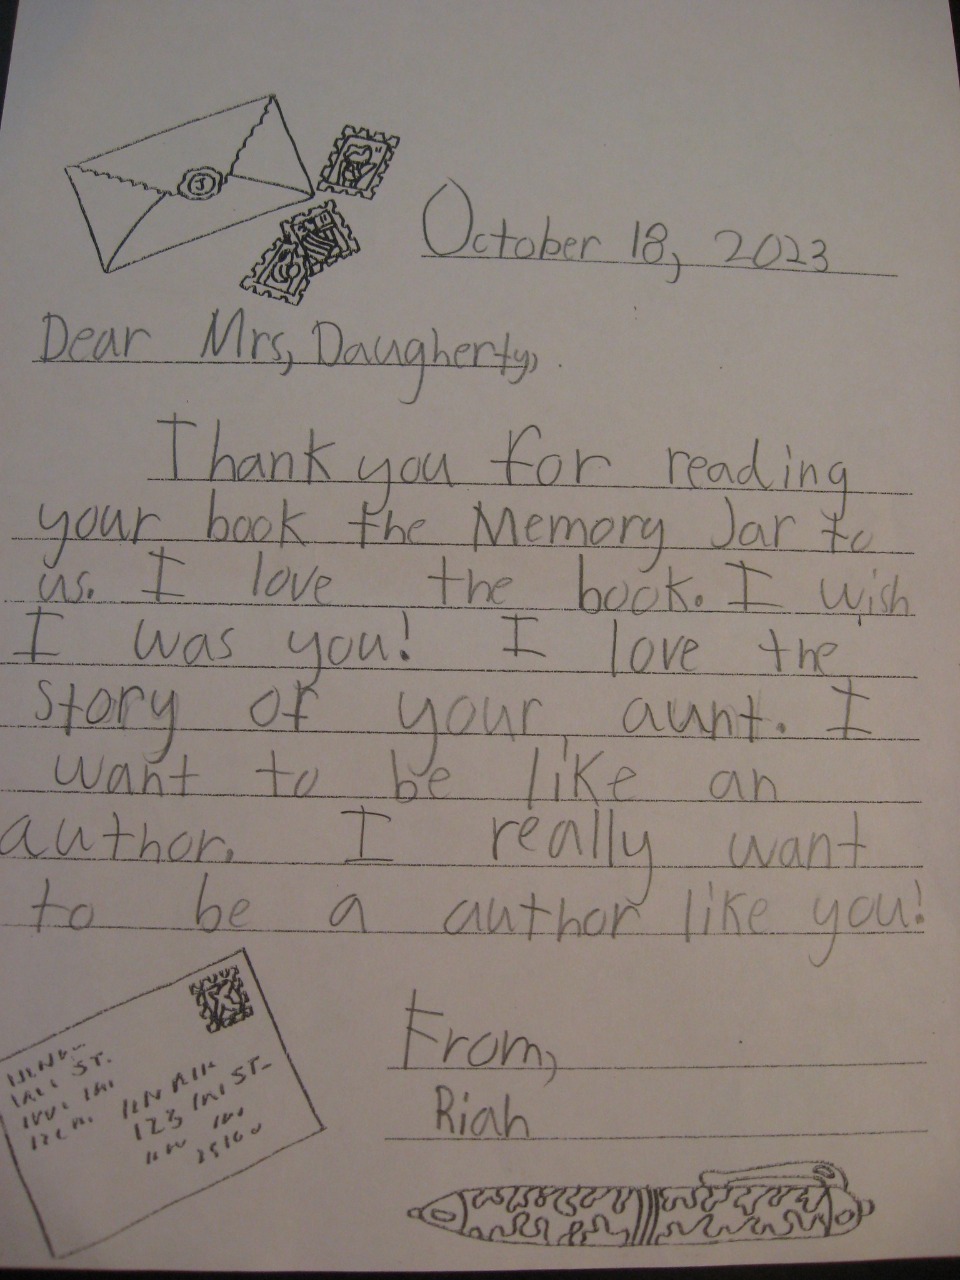 October 18, 2023
Dear Mrs, Daugherty,
Thank you for reading
your book the Memory Jar to
us. I love the book. I wish
I was you! I love the
story of your aunt. I
want to be like an
author. I really want
to be a author like you!
From,
Riah
J
ST.
123 ST.